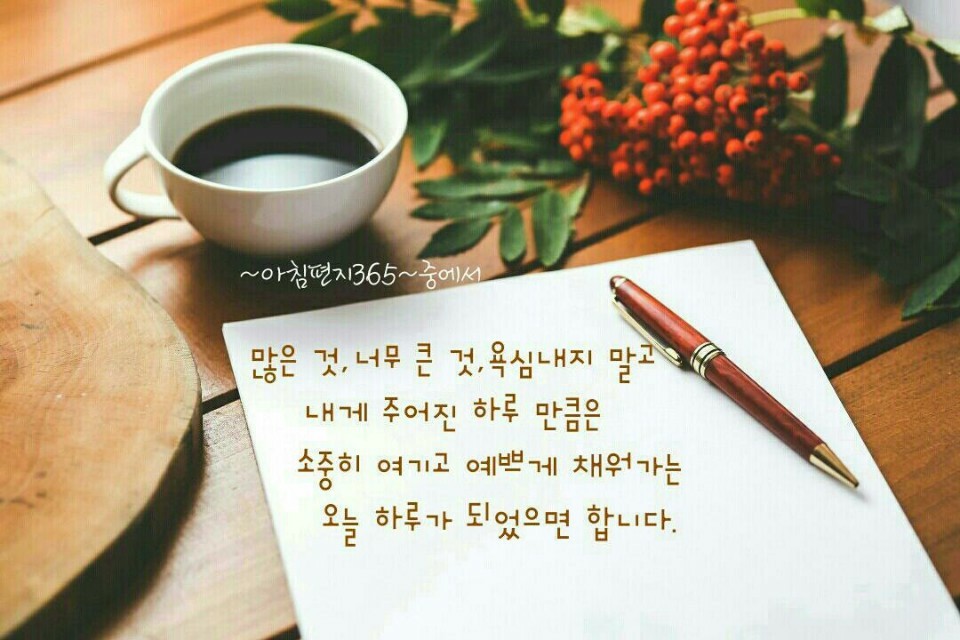 ~아침편지365~중에서
많은 것,너무 큰 것,욕심내지 말고
내게 주어진 하루 만큼은
소중히 여기고 예쁘게 채워가는
오늘 하루가 되었으면 합니다.